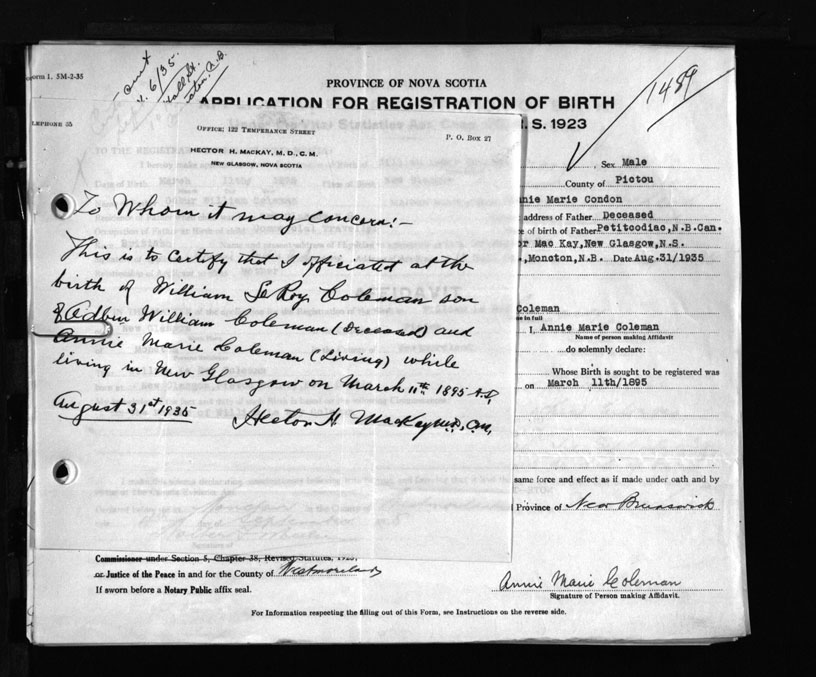 orm 1. 5M-2-35
6/35.
PROVINCE OF NOVA SCOTIA
APPLICATION FOR REGISTRATION OF BIRTH
S. 1923
1489
LEPHONE 35
OFFICE: 122 TEMPERANCE STREET
P. O. BOX 27
HECTOR H. MACKAY, M. D., C. M.
NEW GLASGOW, NOVA SCOTIA
To Whom it may concern:-
This is to certify that I officiated at the
birth of William LeRoy Coleman son
of William Coleman (Deceased) and
Annie Marie Coleman (Living) while
living in New Glasgow on March 11th 1895 A.D.
August 31st 1935
Hector H. MacKay M.D., C.M.
Sex Male
County of Pictou
nie Marie Condon
address of Father Deceased
e of birth of Father Petitcodiac, N.B. Can.
or Mac Kay, New Glasgow, N.S.
., Moncton, N.B. Date Aug. 31/1935
Coleman
e in full
I, Annie Marie Coleman
Name of person making Affidavit
do solemnly declare:
Whose Birth is sought to be registered was
on March 11th/1895
same force and effect as if made under oath and by
Province of New Brunswick
Commissioner under Section 5, Chapter 38, Revised Statutes, 1923,
or Justice of the Peace in and for the County of Westmoreland
If sworn before a Notary Public affix seal.
Annie Marie Coleman
Signature of Person making Affidavit.
For Information respecting the filling out of this Form, see Instructions on the reverse side.